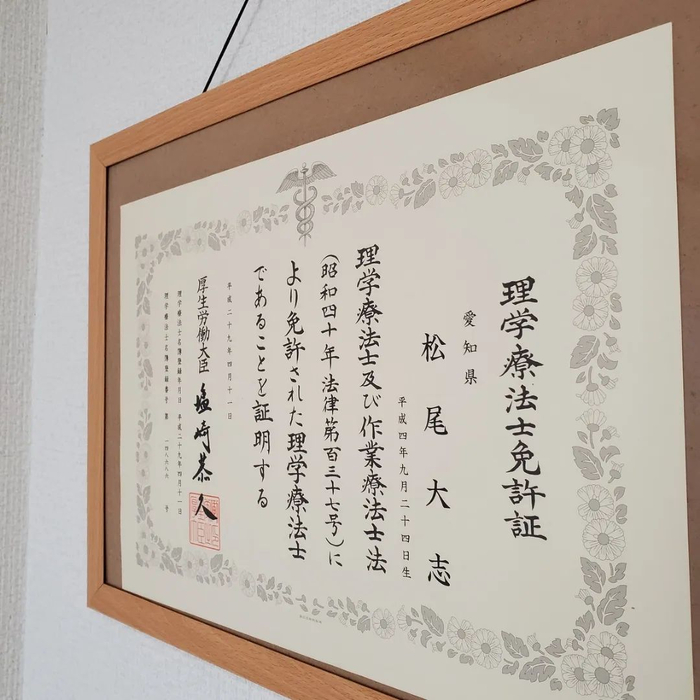 理学療法士免許証
愛知県
松尾大志
平成四年九月二十四日生
理学療法士及び作業療法士法
(昭和四十年法律第百三十七号)に
より免許された理学療法士
であることを証明する
平成二十九年四月十一日
厚生労働大臣 塩崎恭久
理学療法士名簿登録年月日 平成二十九年四月十一日
理学療法士名簿登録番号 第 号